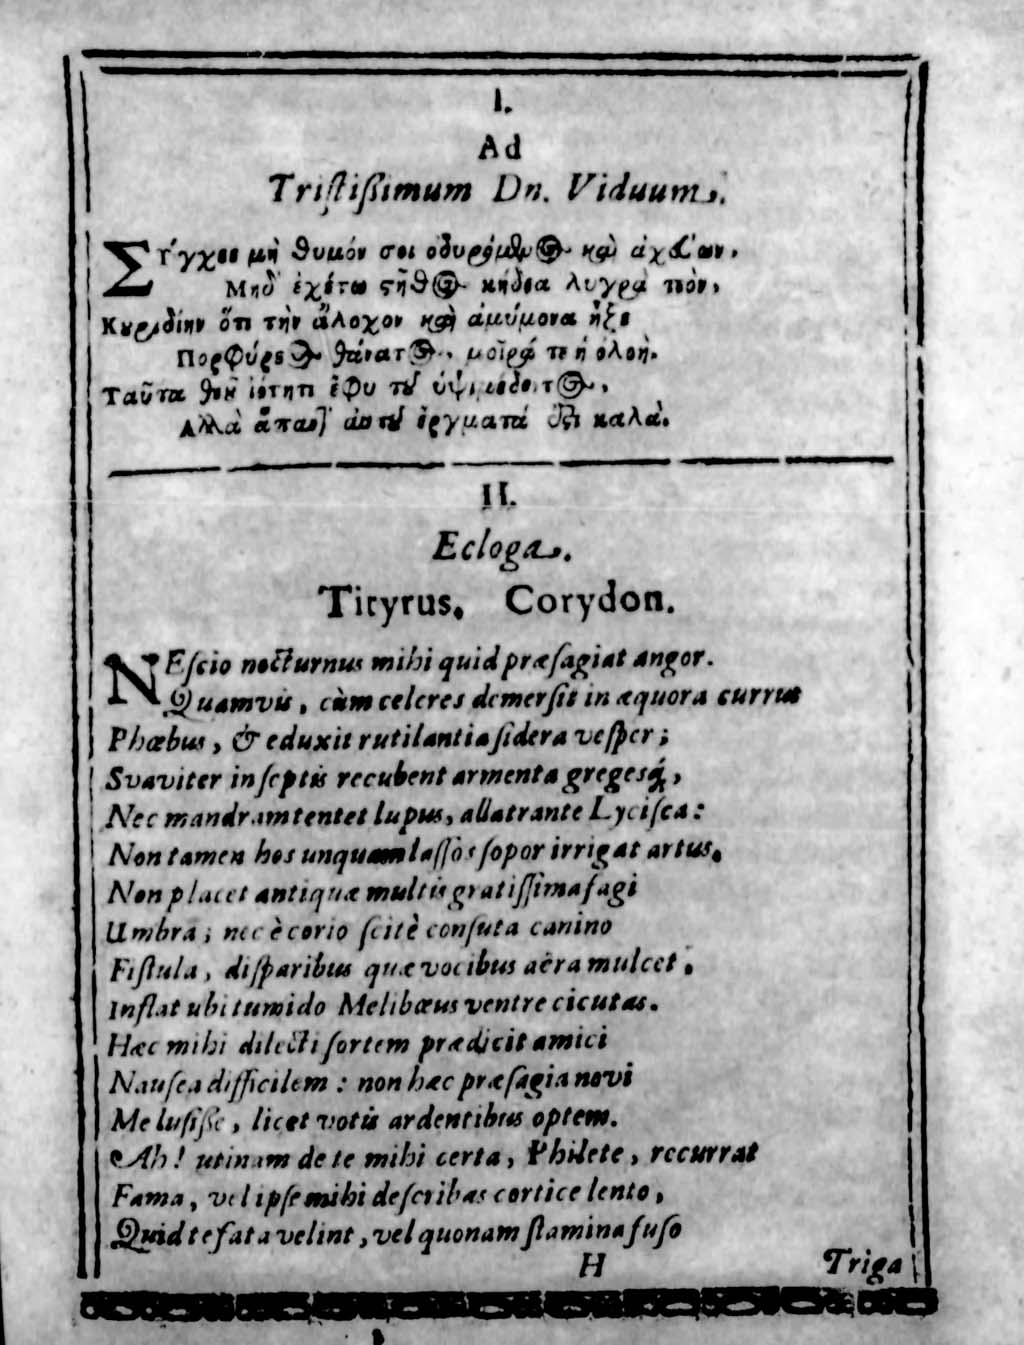 I.
Ad
Tristißimum Dn. Viduum.
Σύγχεε μὴ θυμόν σοι ὀδυρόμενος καὶ ἀχέων,
Μηδ' ἐχέτω στῆθος κήδεα λυγρὰ τεόν,
Κουριδίην ὅτι τὴν ἄλοχον καὶ ἀμύμονα ἧξε
Πορφύρεος θάνατος, μοῖρά τε ἡ ὀλοή.
Ταῦτα θεοῦ ἰότητι ἔφυ τοῦ ὑψιμέδοντος,
Αλλὰ ἅπαντ' αὐτοῦ ἔργματά ἐστι καλά.
II.
Ecloga.
Tityrus. Corydon.
NEscio nocturnus mihi quid præsagiat angor.
Quamvis, cùm celeres demersit in æquora currus
Phœbus, & eduxit rutilantia sidera vesper;
Svaviter in septis recubent armenta gregesq́,
Nec mandram tentet lupus, allatrante Lycisca:
Non tamen hos unquam lassos sopor irrigat artus.
Non placet antiquæ multis gratissima fagi
Umbra; nec è corio scitè consuta canino
Fistula, disparibus quæ vocibus aëra mulcet,
Inflat ubi tumido Melibœus ventre cicutas.
Hæc mihi dilecti sortem prædicit amici
Nausea difficilem: non hæc præsagia novi
Me lusiße, licet votis ardentibus optem.
Ah! utinam de te mihi certa, Philete, recurrat
Fama, vel ipse mihi describas cortice lento,
Quid te fata velint, vel quonam stamina fuso
H Triga